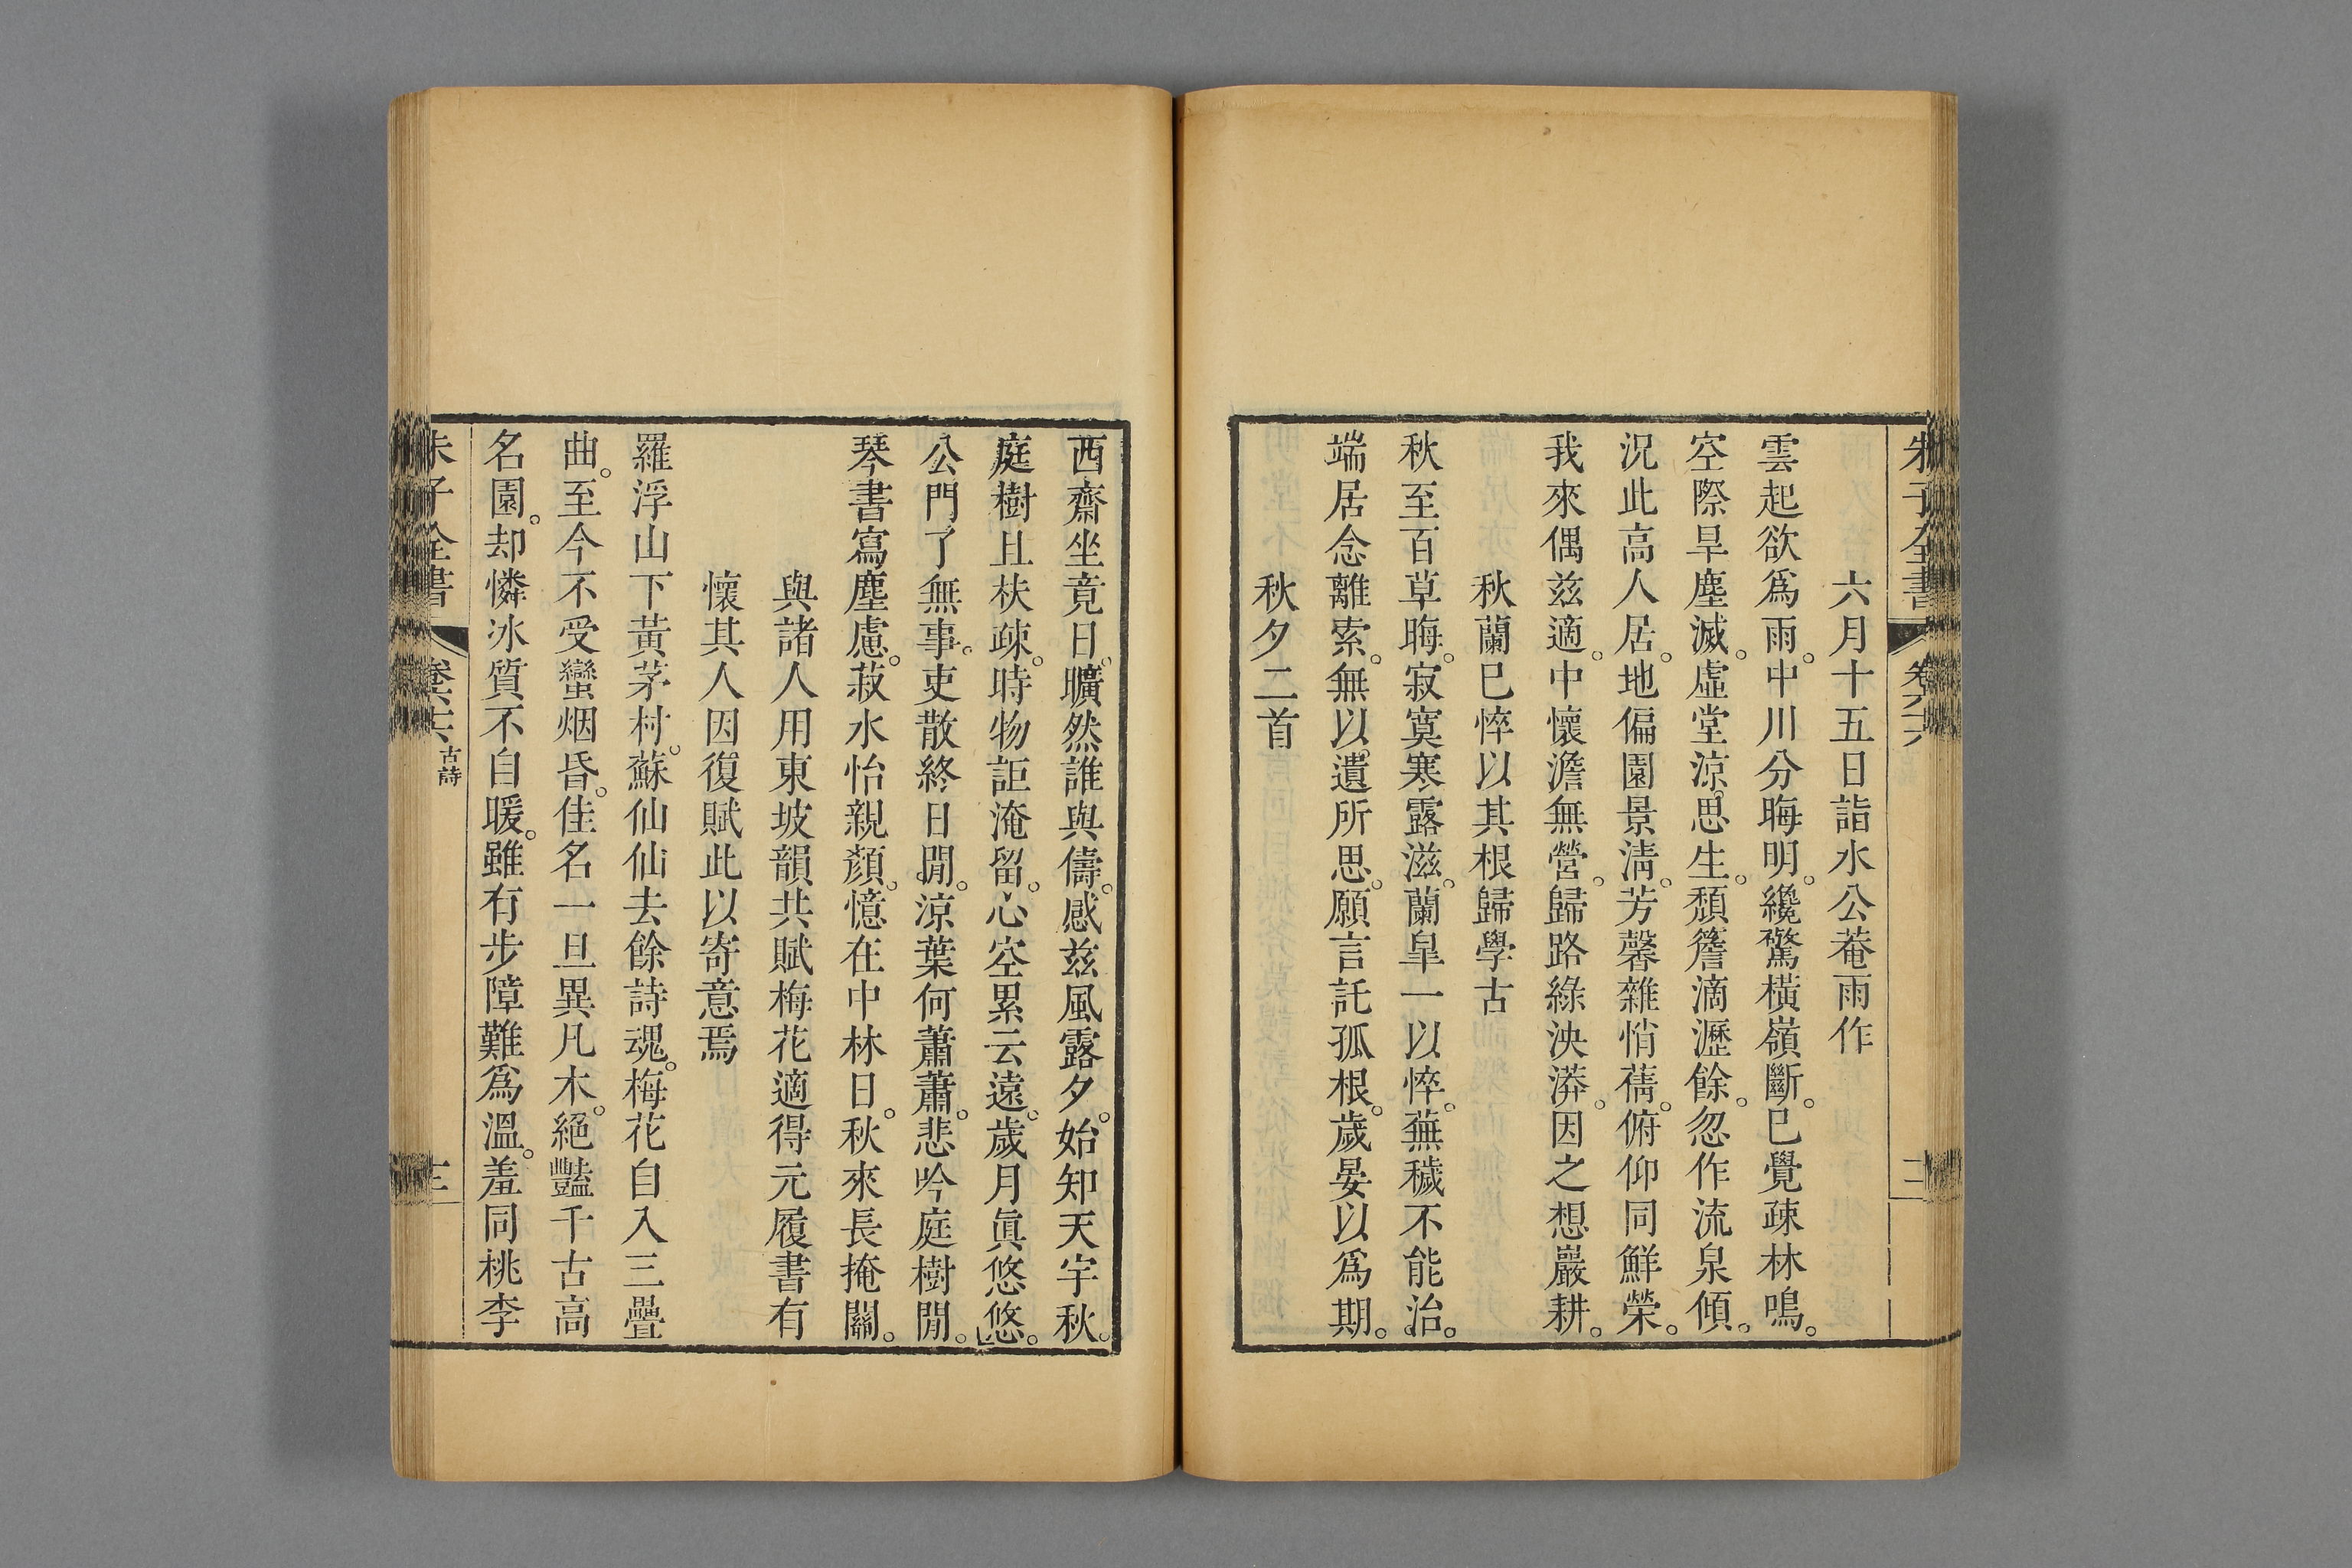 朱子全書 卷六十六
六月十五日詣水公菴雨作
雲起欲爲雨。中川分晦明。纔驚橫嶺斷。已覺疎林鳴。
空際旱塵滅。虛堂涼思生。頹簷滴瀝餘。忽作流泉傾。
況此高人居。地偏園景淸。芳馨雜悄蒨。俯仰同鮮榮。
我來偶兹適。中懷澹無營。歸路綠泱漭。因之想巖耕。
秋蘭已悴以其根歸學古
秋至百草晦。寂寞寒露滋。蘭皐一以悴。蕪穢不能治。
端居念離索。無以遺所思。願言託孤根。歲晏以爲期。
秋夕二首
西齋坐竟日。曠然誰與儔。感兹風露夕。始知天宇秋。
庭樹且扶疎。時物詎淹留。心空累云遠。歲月眞悠悠。
公門了無事。吏散終日閒。涼葉何蕭蕭。悲吟庭樹間。
琴書寫塵慮。菽水怡親顏。憶在中林日。秋來長掩關。
與諸人用東坡韻共賦梅花適得元履書有
懷其人因復賦此以寄意焉
羅浮山下黃茅村。蘇仙仙去餘詩魂。梅花自入三疊
曲。至今不受蠻烟昏。佳名一旦異凡木。絕豔千古高
名園。却憐冰質不自暖。雖有步障難爲溫。羞同桃李
朱子全書 卷六十六 古詩